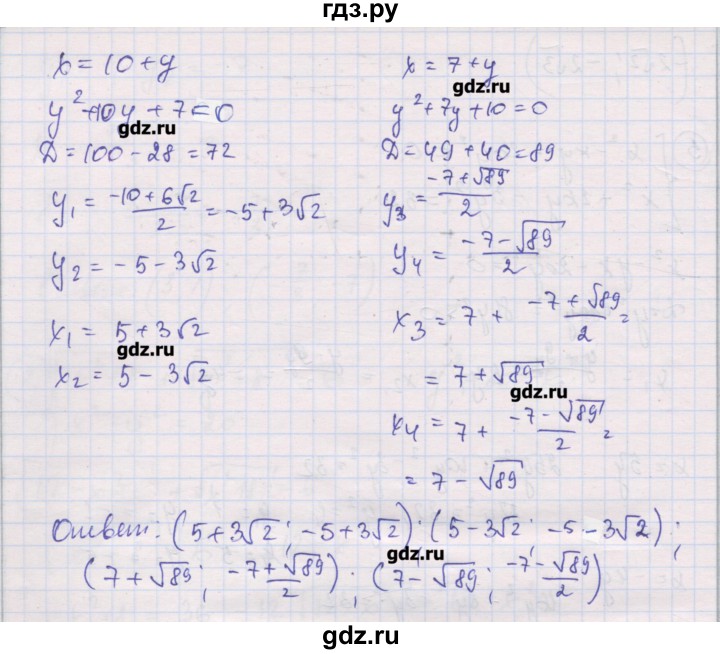 гдз.ру
x = 10 + y
y² + 10y + 7 = 0
gdz.ru
D = 100 - 28 = 72
y₁ = (-10 + 6√2)/2 = -5 + 3√2
y₂ = -5 - 3√2
x₁ = 5 + 3√2
gdz.ru
x₂ = 5 - 3√2
x = 7 + y
gdz.ru
y² + 7y + 10 = 0
D = 49 + 40 = 89
y₃ = (-7 + √89)/2
gdz.ru
y₄ = (-7 - √89)/2
x₃ = 7 + (-7 + √89)/2 =
= 7 + √89
gdz.ru
x₄ = 7 + (-7 - √89)/2 =
= 7 - √89
gdz.ru
Ответ: (5 + 3√2; -5 + 3√2); (5 - 3√2; -5 - 3√2);
gdz.ru
(7 + √89; (-7 + √89)/2); (7 - √89; (-7 - √89)/2)
gdz.ru